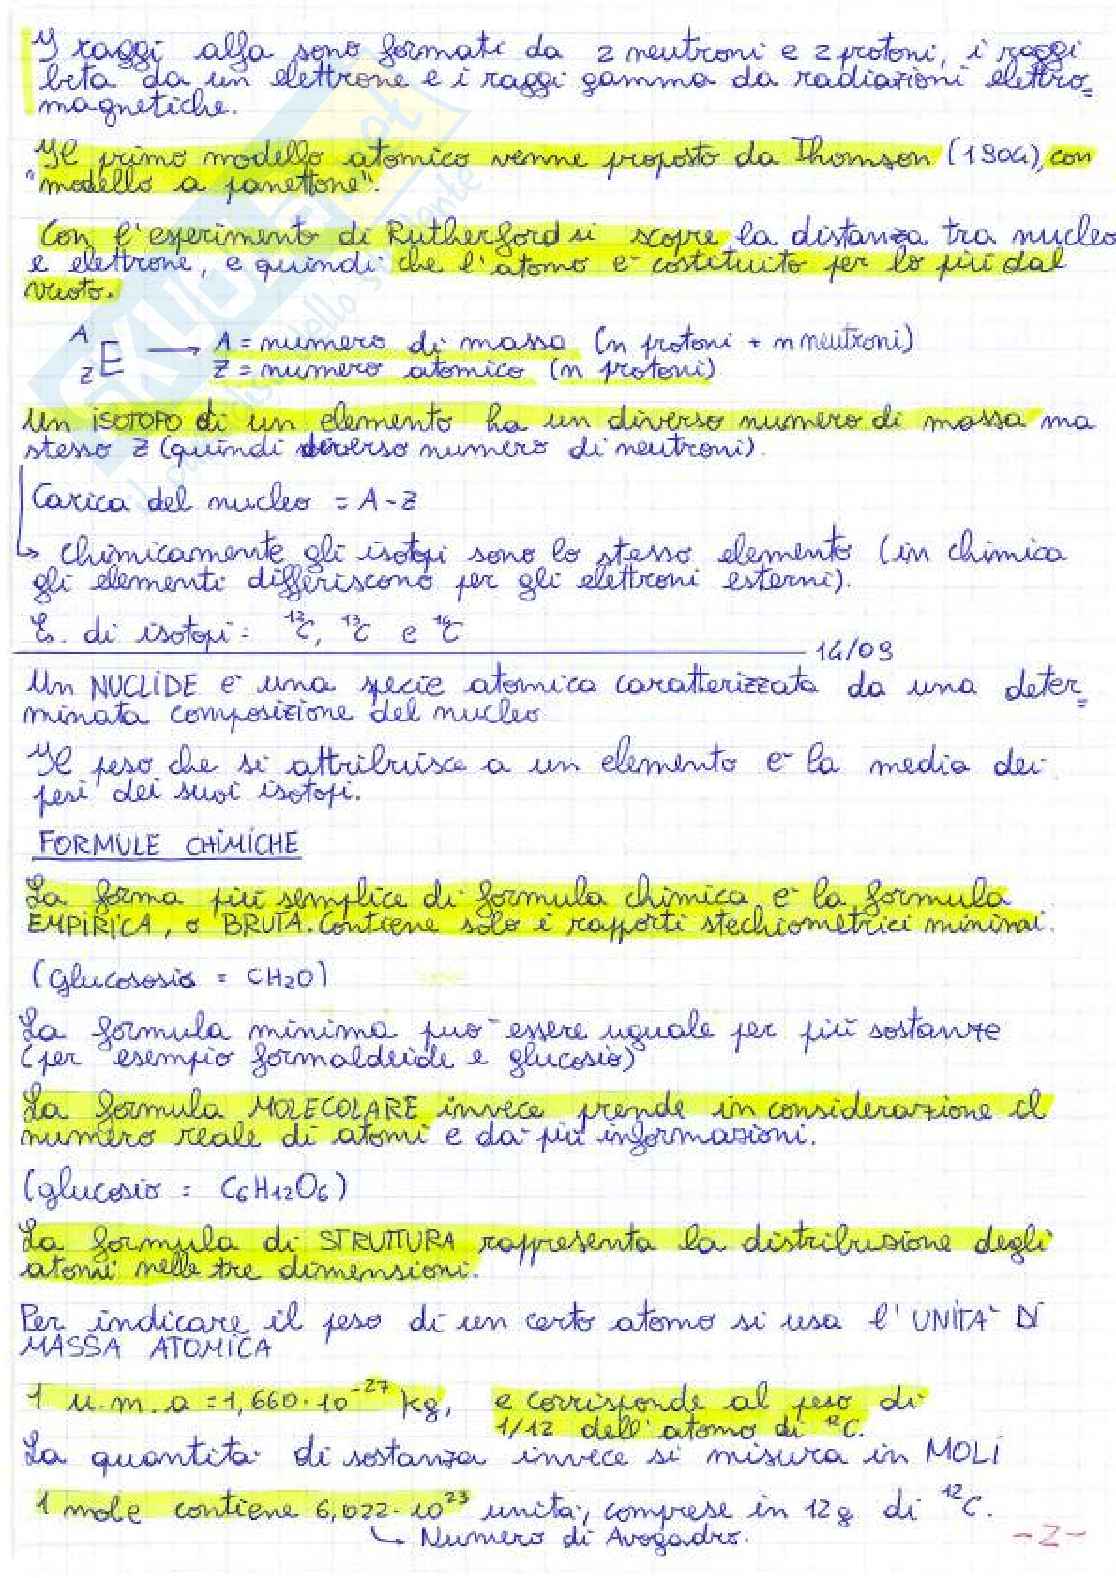 I raggi alfa sono formati da 2 neutroni e 2 protoni, i raggi
beta da un elettrone e i raggi gamma da radiazioni elettro=
magnetiche.
Il primo modello atomico venne proposto da Thomson (1904), con
"modello a panettone".
Con l'esperimento di Rutherford si scopre la distanza tra nucleo
e elettrone, e quindi che l'atomo è costituito per lo più dal
vuoto.
A
Z E → A = numero di massa (n protoni + n neutroni)
Z = numero atomico (n protoni)
Un ISOTOPO di un elemento ha un diverso numero di massa ma
stesso Z (quindi diverso numero di neutroni).
Carica del nucleo = A-Z
↳ Chimicamente gli isotopi sono lo stesso elemento (in chimica
gli elementi differiscono per gli elettroni esterni).
Es. di isotopi = ¹²C, ¹³C e ¹⁴C
14/09
Un NUCLIDE è una specie atomica caratterizzata da una deter=
minata composizione del nucleo
Il peso che si attribuisce a un elemento è la media dei
pesi dei suoi isotopi.
FORMULE CHIMICHE
La forma più semplice di formula chimica è la formula
EMPIRICA, o BRUTA. Contiene solo i rapporti stechiometrici minimi.
(glucososio = CH₂O)
La formula minima può essere uguale per più sostanze
(per esempio formaldeide e glucosio)
La formula MOLECOLARE invece prende in considerazione il
numero reale di atomi e dà più informazioni.
(glucosio = C₆H₁₂O₆)
La formula di STRUTTURA rappresenta la distribuzione degli
atomi nelle tre dimensioni.
Per indicare il peso di un certo atomo si usa l'UNITÀ DI
MASSA ATOMICA
1 u.m.a = 1,660·10⁻²⁷ kg, e corrisponde al peso di
1/12 dell'atomo di ¹²C.
La quantità di sostanza invece si misura in MOLI
1 mole contiene 6,022·10²³ unità, comprese in 12g di ¹²C.
↳ Numero di Avogadro.
-2-